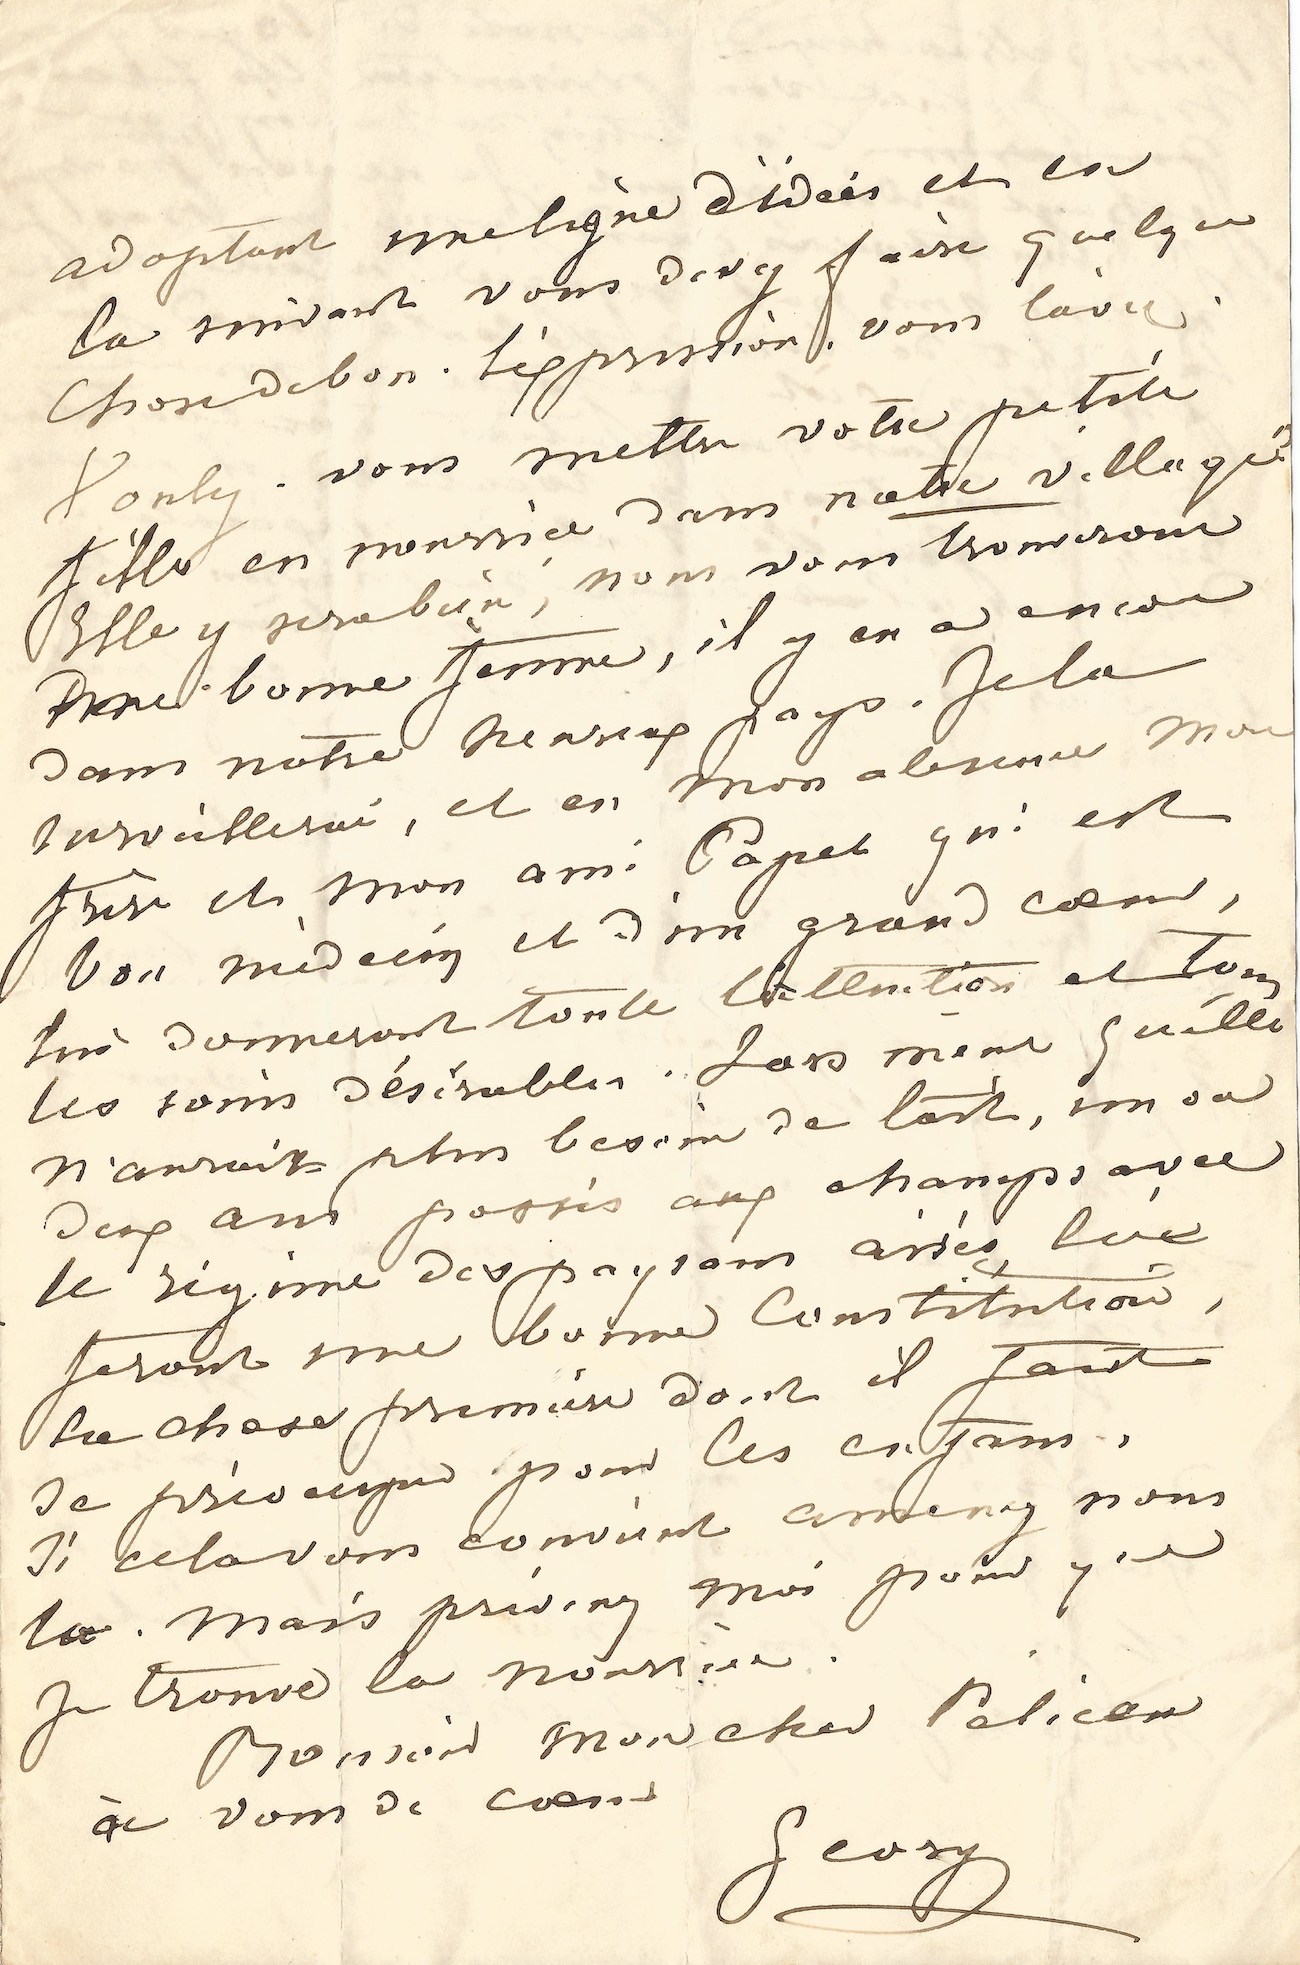 adoptant une ligne d'idées et en
la suivant vous devez faire quelque
chose de bon. l'expression, vous l'avez.
Voulez vous mettre votre petite
fille en nourrice dans notre village?
Elle y sera bien, nous vous trouverons
une bonne femme, il y en a encore
dans notre heureux pays. Je la
surveillerai, et en mon absence mon
frère et mon ami Papet qui est
bon médecin et d'un grand cœur,
lui donneront toute l'attention et tous
les soins désirables. Lors même qu'elle
n'aurait plus besoin de lait, un ou
deux ans passés aux champs avec
le régime des paysans aisés, lui
feront une bonne constitution,
la chose première dont il faut
se préoccuper pour les enfans.
Si cela vous convient amenez nous
la. Mais prévenez moi pour que
je trouve la nourrice.
Bonsoir mon cher Pélican
à vous de cœur
George